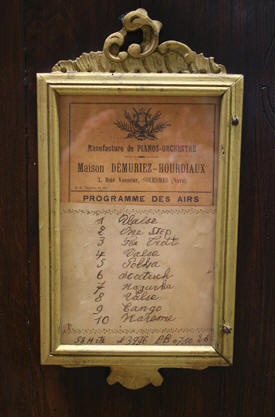 Manufacture de PIANOS-ORCHESTRE
Maison DEMURIEZ-HOURDIAUX
3, Rue Vasseur, SOLESMES (Nord)
PROGRAMME DES AIRS
1 Valse
2 One Step
3 Fox Trott
4 Valse
5 Polka
6 Scottish
7 Mazurka
8 Valse
9 Tango
10